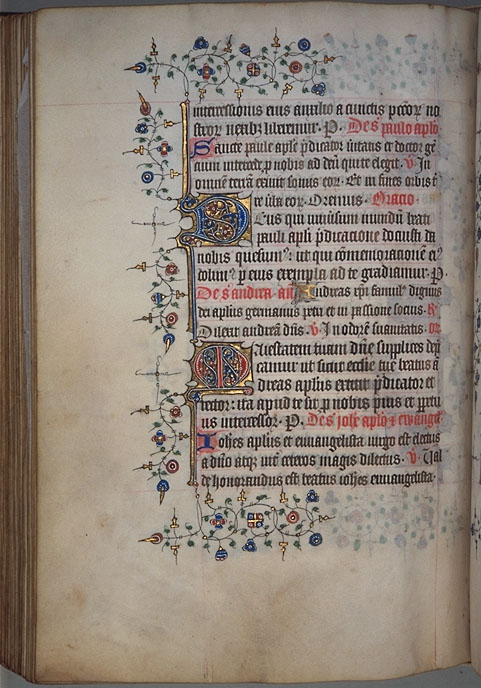 intercessionis eius auxilio a cunctis pctoꝝ no
stroꝝ nexibꝫ liberemur. P. De s paulo aplo
Sancte paule aple p̄dicator ūitatis et doctor gē
cium intercede ꝓ nobis ad deū qui te elegit. V̄ In
omnem terrā exiuit sonus eoꝝ. Et in fines orbis t
re ūba eoꝝ. Oremus. Oracio
Deus qui uniuersum mundū beati
pauli apli p̄dicatione docuisti da
nobis quesumꝰ: ut qui cōmemorationē eiꝰ
colimꝰ ꝑ eius exempla ad te gradiamur. P.
De s andrea. an Andreas xp̄i famulꝰ dignus
dei aplus germanus petri et in passione socius. R
Dilexit andreā dn̄s. V̄ In odorē suauitatis. or
Maiestatem tuam dn̄e supplices dep̄
camur ut sicut ecclesie tue beatus a
dreas aplus extitit p̄dicator et
rector: ita apud te sit ꝓ nobis pius et petu
us intercessor. P. De s iohe aplo et ewange
Iohes aplus et euuangelista uirgo est electus
a dn̄o atqꝫ inter ceteros magis dilectus. V̄ Ual
de honorandus est beatus iohes euuangelista.